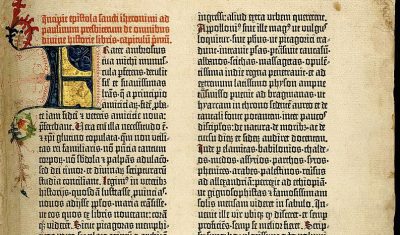 Incipit epistola sancti iheronimi ad
paulinum presbiterum de omnibus
divine historie libris·capitulū primū.
Frater ambrosius
tua michi munus-
cula perferens·detulit
sil et suavissimas
lrās·q̄ a principio
amiciciaꝝ·fidē pba-
te iam fidei et veteris amicicie nova:
pferebant. Vera eni illa necessitudo ē·
et xpi glutino copulata·quā non utili-
tas rei familiaris·nō pntia tantum
corpoꝝ·nō sbdola et palpās adulacō·
sed dei timor·et divinaꝝ scripturaꝝ
studia conciliant. Legim in veterib
historijs·quosdā lustrasse pvincias·
novos adijsse pplos·maria trāsisse·
ut eos quos ex libris noverant: corā
qz viderēt. Sicut pitagoras memphi-
ingressi aliud extra urbem quererent.
Appolloni sive ille mag ut vulgus
loquitur·sive phus·ut pitagorici tra-
dunt·intravit psas·ptrāsivit caucasū·
albanos·scithas·massagetas·opulē-
tissima indie regna penetravit·et ad
extremum latissimo physon ampne
transmisso pvenit ad bragmanas·ut
hyarcam in throno sedentē aureo et de
tantali fonte potantem·inter paucos
discipulos·de natura·de moribz ac de
cursu dierū et siderū audiret docentem.
Inde p elamitas·babilonios·chalde-
os·medos·assyrios·parthos·syros·
phenices·arabes·palestinos·reversus
ad alexandriā:perrexit ad ethiopiam·
ut gignosophistas et famosissimam
solis mensam videret in sabulo. Inve-
nit ille vir ubiqz qd disceret: et semp
proficiēs·semp se melior fieret. Scrip-